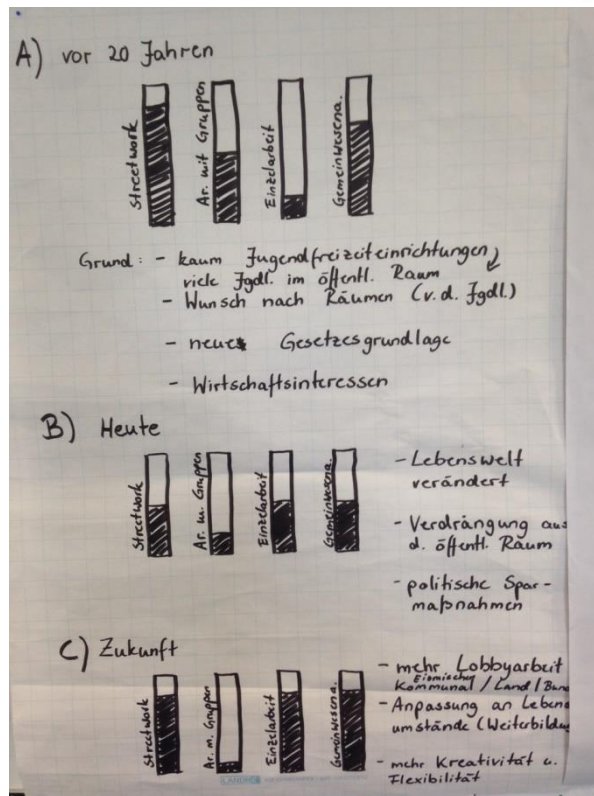 A) vor 20 Jahren
Streetwork
Ar. mit Gruppen
Einzelarbeit
Gemeinwesena.
Grund: - kaum Jugendfreizeiteinrichtungen,
viele Jgdl. im öffentl. Raum
- Wunsch nach Räumen (v. d. Jgdl.)
- neue Gesetzesgrundlage
- Wirtschaftsinteressen
B) Heute
Streetwork
Ar. m. Gruppen
Einzelarbeit
Gemeinwesena.
- Lebenswelt
verändert
- Verdrängung aus
d. öffentl. Raum
- politische Spar-
maßnahmen
C) Zukunft
Streetwork
Ar. m. Gruppen
Einzelarbeit
Gemeinwesena.
- mehr Lobbyarbeit
Kommunal / Land / Bund
- Anpassung an Lebens
umstände (Weiterbildu
- mehr Kreativität u.
Flexibilität